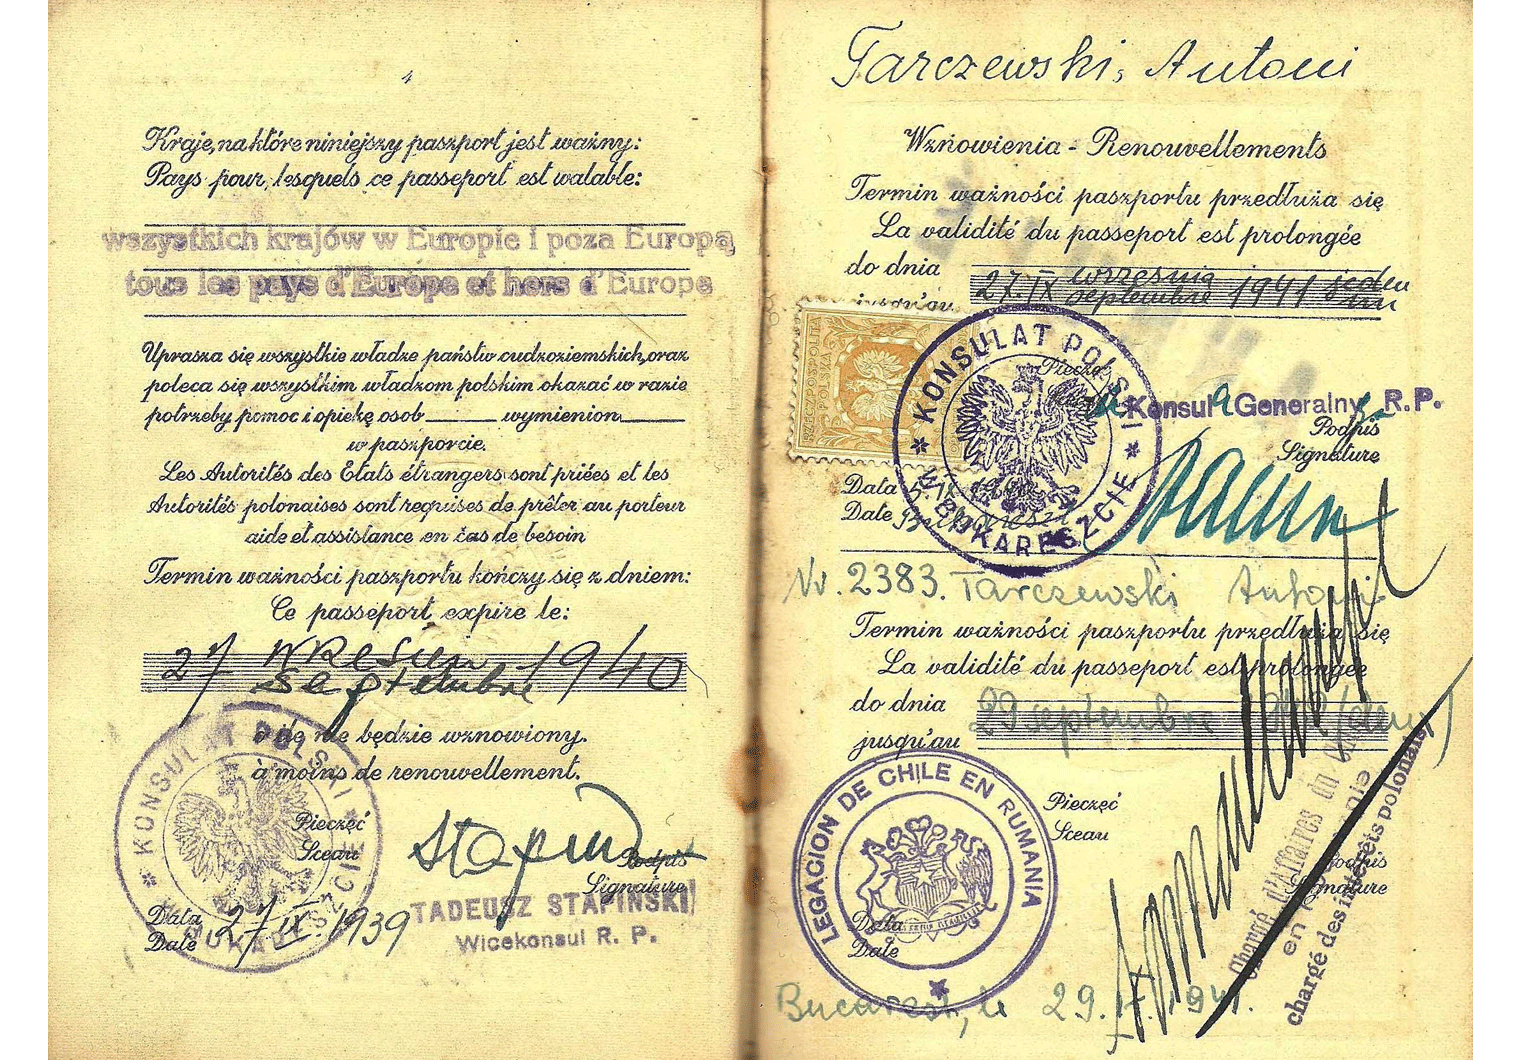 4
Kraje, na które niniejszy paszport jest ważny:
Pays pour lesquels ce passeport est walable:
wszystkich krajów w Europie i poza Europą
tous les pays d'Europe et hors d'Europe
Uprasza się wszystkie władze państw cudzoziemskich, oraz
poleca się wszystkim władzom polskim okazać w razie
potrzeby pomoc i opiekę osob______ wymienion______
w paszporcie.
Les Autorités des Etats étrangers sont priées et les
Autorités polonaises sont requises de prêter au porteur
aide et assistance en cas de besoin
Termin ważności paszportu kończy się z dniem:
Ce passeport expire le:
27 września 1940
septembre
o ile nie będzie wznowiony.
à moins de renouvellement.
KONSULAT POLSKI
W BUKARESZCIE
Pieczęć
Sceau
Podpis
Signature
TADEUSZ STAPIŃSKI
Wicekonsul R. P.
Data
Date
27 IX. 1939
Tarczewski, Antoni
Wznowienia - Renouvellements
Termin ważności paszportu przedłuża się
La validité du passeport est prolongée
do dnia
jusqu'au
27. IX września 1941
septembre
RZECZPOSPOLITA POLSKA
KONSULAT POLSKI
W BUKARESZCIE
Pieczęć
Konsul Generalny R.P.
Podpis
Signature
Data
Date
Nr. 2383. Tarczewski Antoni
Termin ważności paszportu przedłuża się
La validité du passeport est prolongée
do dnia
29 septembre
jusqu'au
LEGACION DE CHILE EN RUMANIA
Pieczęć
Sceau
Podpis
Signature
Data
Date
Chargé d'Affaires du Chili
en Roumanie
chargé des intérêts polonais
Bucarest, le 29. IX. 1941.